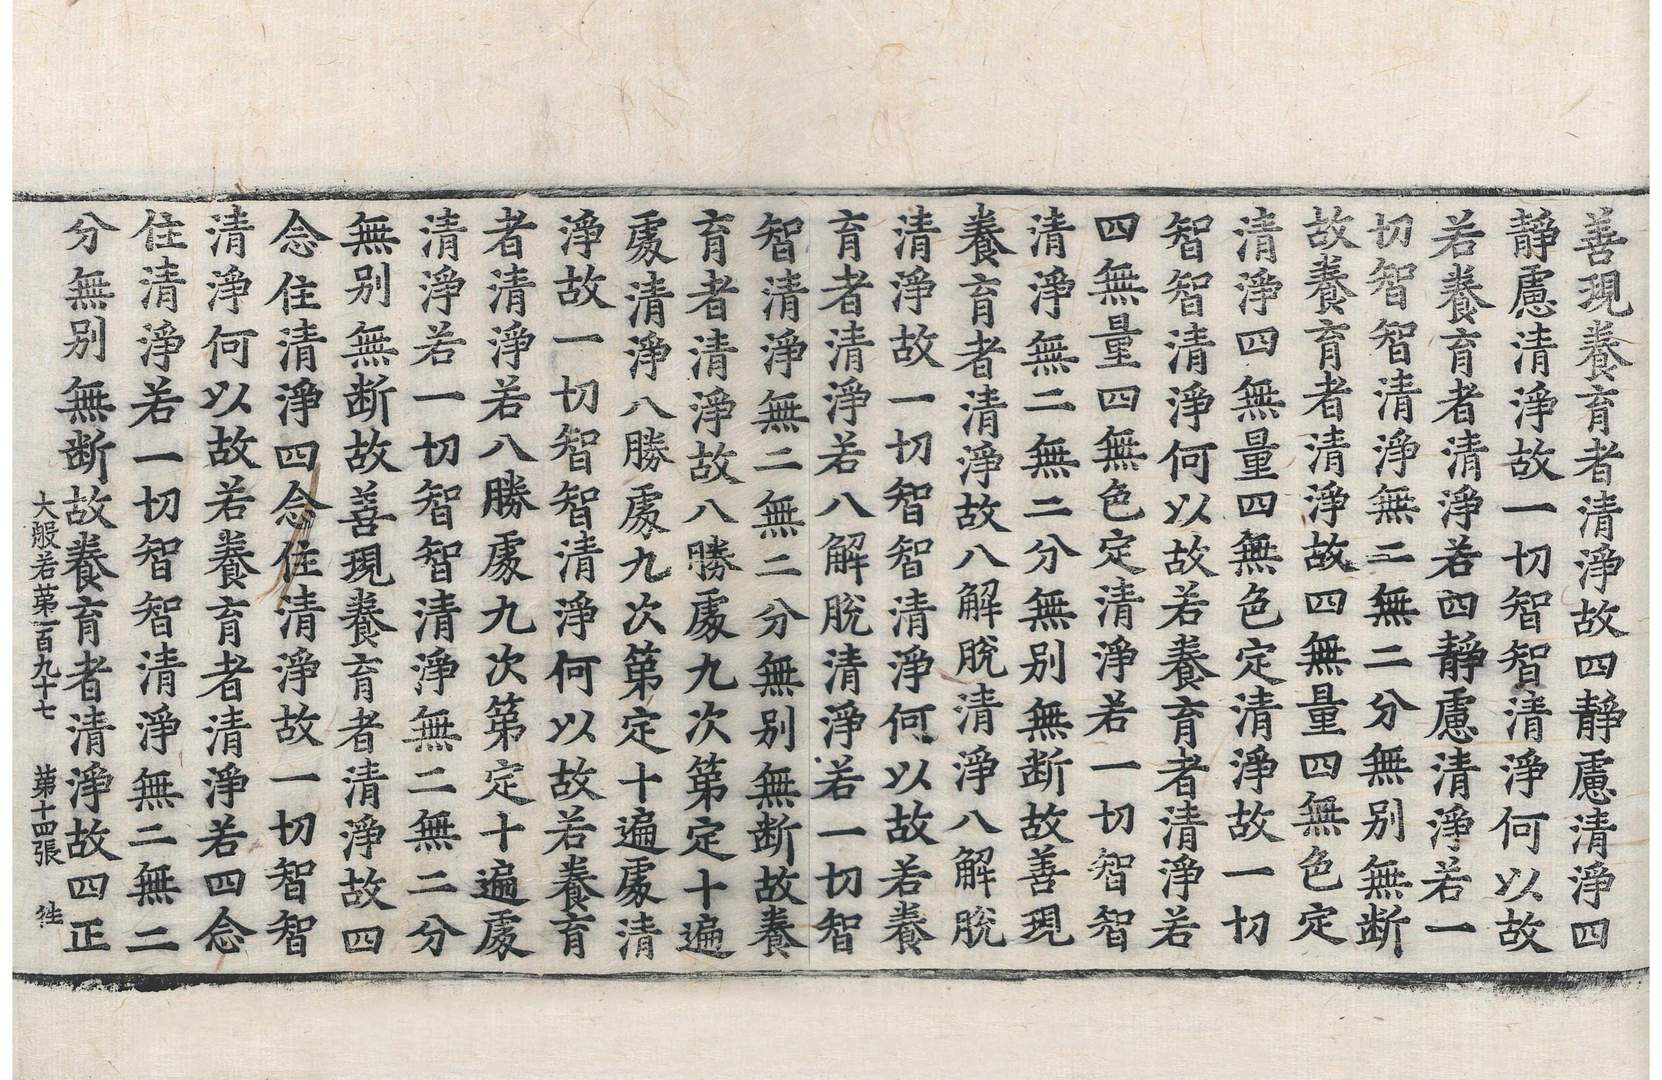 善現養育者清淨故四靜慮清淨四
靜慮清淨故一切智智清淨何以故
若養育者清淨若四靜慮清淨若一
切智智清淨無二無二分無别無断
故養育者清淨故四無量四無色定
清淨四無量四無色定清淨故一切
智智清淨何以故若養育者清淨若
四無量四無色定清淨若一切智智
清淨無二無二分無别無断故善現
養育者清淨故八解脫清淨八解脫
清淨故一切智智清淨何以故若養
育者清淨若八解脫清淨若一切智
智清淨無二無二分無别無断故養
育者清淨故八勝處九次第定十遍
處清淨八勝處九次第定十遍處清
淨故一切智智清淨何以故若養育
者清淨若八勝處九次第定十遍處
清淨若一切智智清淨無二無二分
無别無断故善現養育者清淨故四
念住清淨四念住清淨故一切智智
清淨何以故若養育者清淨若四念
住清淨若一切智智清淨無二無二
分無别無断故養育者清淨故四正
大般若苐一百九十七 苐十四張 徃